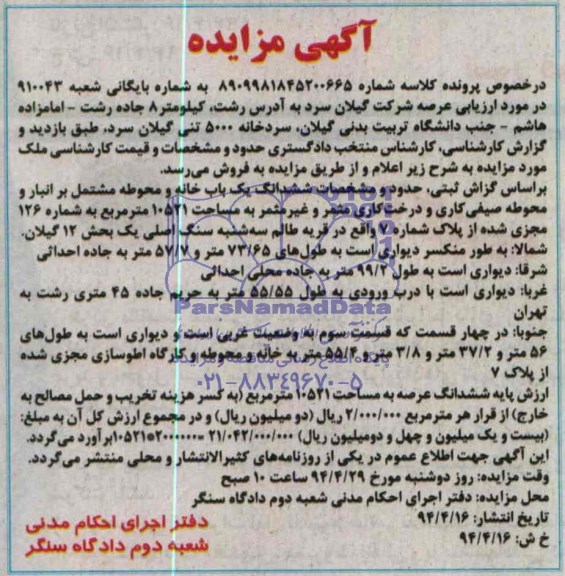 آگهی مزایده
درخصوص پرونده کلاسه شماره ۸۹۰۹۹۸۱۸۴۵۲۰۰۶۶۵ به شماره بایگانی شعبه ۹۱۰۰۴۳
در مورد ارزیابی عرصه شرکت گیلان سرد به آدرس رشت، کیلومتر۸ جاده رشت - امامزاده
هاشم - جنب دانشگاه تربیت بدنی گیلان، سردخانه ۵۰۰۰ تنی گیلان سرد، طبق بازدید و
گزارش کارشناسی، کارشناس منتخب دادگستری حدود و مشخصات و قیمت کارشناسی ملک
مورد مزایده به شرح زیر اعلام و از طریق مزایده به فروش می‌رسد.
براساس گزاش ثبتی، حدود و مشخصات ششدانگ یک باب خانه و محوطه مشتمل بر انبار و
محوطه صیفی‌کاری و درخت‌کاری مثمر و غیرمثمر به مساحت ۱۰۵۲۱ مترمربع به شماره ۱۲۶
مجزی شده از پلاک شماره ۷ واقع در قریه طالم سه‌شنبه سنگ اصلی یک بحش ۱۲ گیلان.
شمالا: به طور منکسر دیواری است به طول‌های ۷۳/۶۵ متر و ۵۷/۷ متر به جاده احداثی
شرقا: دیواری است به طول ۹۹/۲ متر به جاده محلی احداثی
غربا: دیواری است با درب ورودی به طول ۵۵/۵۵ متر به حریم جاده ۴۵ متری رشت به
تهران
ParsNamadData
جنوبا: در چهار قسمت که قسمت سوم به وضعیت غربی است و دیواری است به طول‌های
۵۶ متر و ۳۷/۲ متر و ۳/۸ متر و ۵۵/۴ متر به خانه و محوطه و کارگاه اطوسازی مجزی شده
از پلاک ۷
۰۲۱-۸۸۳۴۹۶۷۰-۵
ارزش پایه ششدانگ عرصه به مساحت ۱۰۵۲۱ مترمربع (به کسر هزینه تخریب و حمل مصالح به
خارج) از قرار هر مترمربع ۲/۰۰۰/۰۰۰ ریال (دو میلیون ریال) و در مجموع ارزش کل آن به مبلغ:
(بیست و یک میلیون و چهل و دومیلیون ریال) ۲۱/۰۴۲/۰۰۰/۰۰۰ برآورد می‌گردد.
این آگهی جهت اطلاع عموم در یکی از روزنامه‌های کثیرالانتشار و محلی منتشر می‌گردد.
وقت مزایده: روز دوشنبه مورخ ۹۴/۴/۲۹ ساعت ۱۰ صبح
محل مزایده: دفتر اجرای احکام مدنی شعبه دوم دادگاه سنگر
تاریخ انتشار: ۹۴/۴/۱۶
خ ش: ۹۴/۴/۱۶
دفتر اجرای احکام مدنی
شعبه دوم دادگاه سنگر